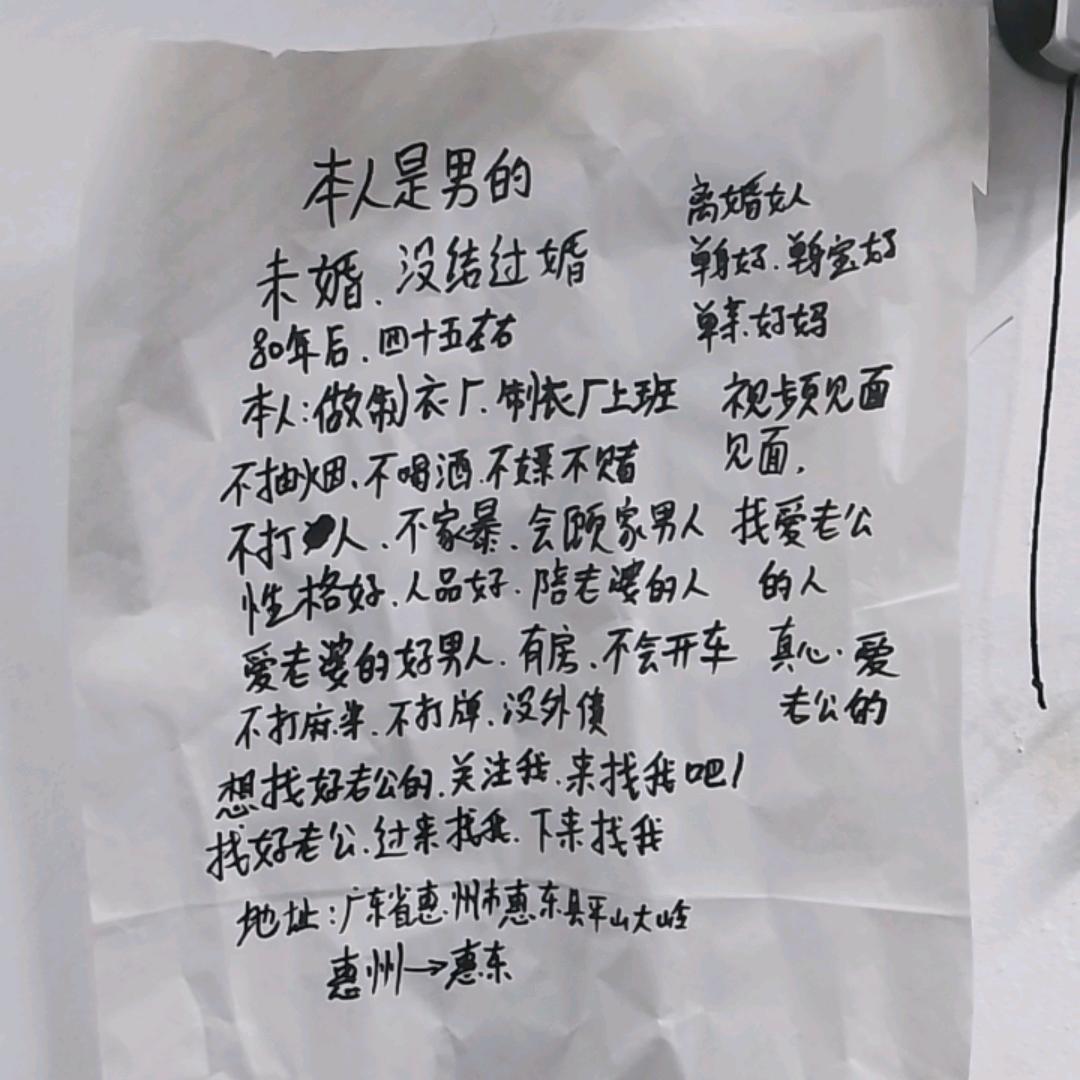 本人是男的
未婚、没结过婚
80年后、四十五左右
本人:做制衣厂、制衣厂上班
不抽烟、不喝酒、不嫖不赌
不打人、不家暴、会顾家男人
性格好、人品好、陪老婆的人
爱老婆的好男人、有房、不会开车
不打麻将、不打牌、没外债
想找好老公的、关注我、来找我吧!
找好老公、过来找我、下来找我
地址:广东省惠州市惠东县平山大岭
惠州→惠东
离婚女人
单身好、单身宝好
单亲、好妈
视频见面
见面,
找爱老公
的人
真心、爱
老公的